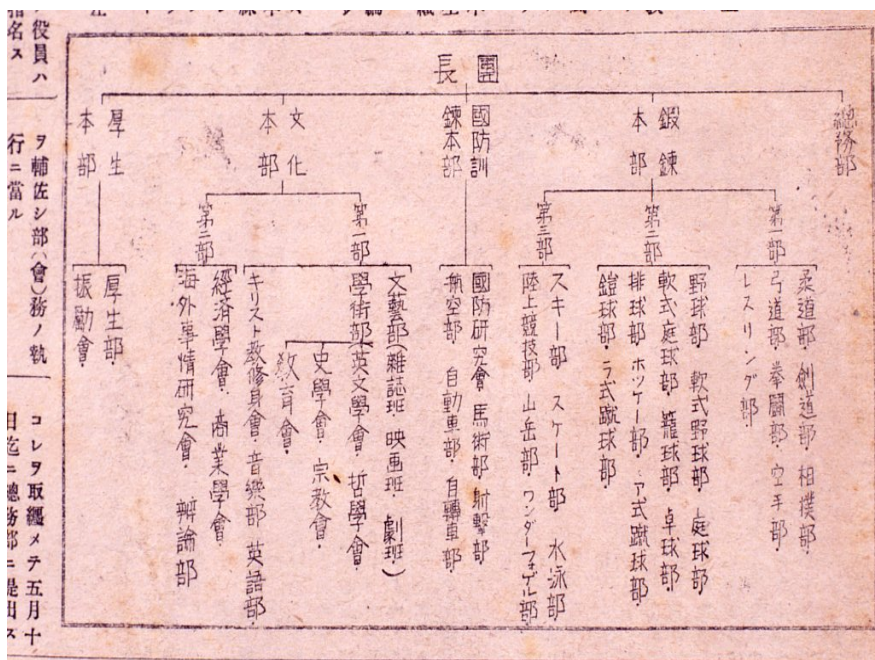 團長
總務部
鍛錬本部
第一部
柔道部・劍道部・相撲部・
弓道部・拳闘部・空手部・
レスリング部・
第二部
野球部・軟式野球部・庭球部・
軟式庭球部・籠球部・卓球部・
排球部・ホッケー部・ア式蹴球部・
鎧球部・ラ式蹴球部・
第三部
スキー部 スケート部 水泳部
陸上競技部 山岳部 ワンダーフォゲル部
國防訓
錬本部
國防研究會 馬術部 射撃部
航空部 自動車部・自轉車部・
文化本部
第一部
文藝部(雜誌班・映画班・劇班・)
學術部(英文學會・哲學會・
史學會・宗教會・
教育會・
キリスト教修身會・音樂部 英語部
第二部
經済學會・商業學會・
海外事情研究會・辨論部
厚生本部
厚生部・
振勵會・
役員ハ
指名ス
ヲ輔佐シ部(會)務ノ執
行ニ當ル
コレヲ取纒メテ五月十
日迄ニ總務部ニ提出ス